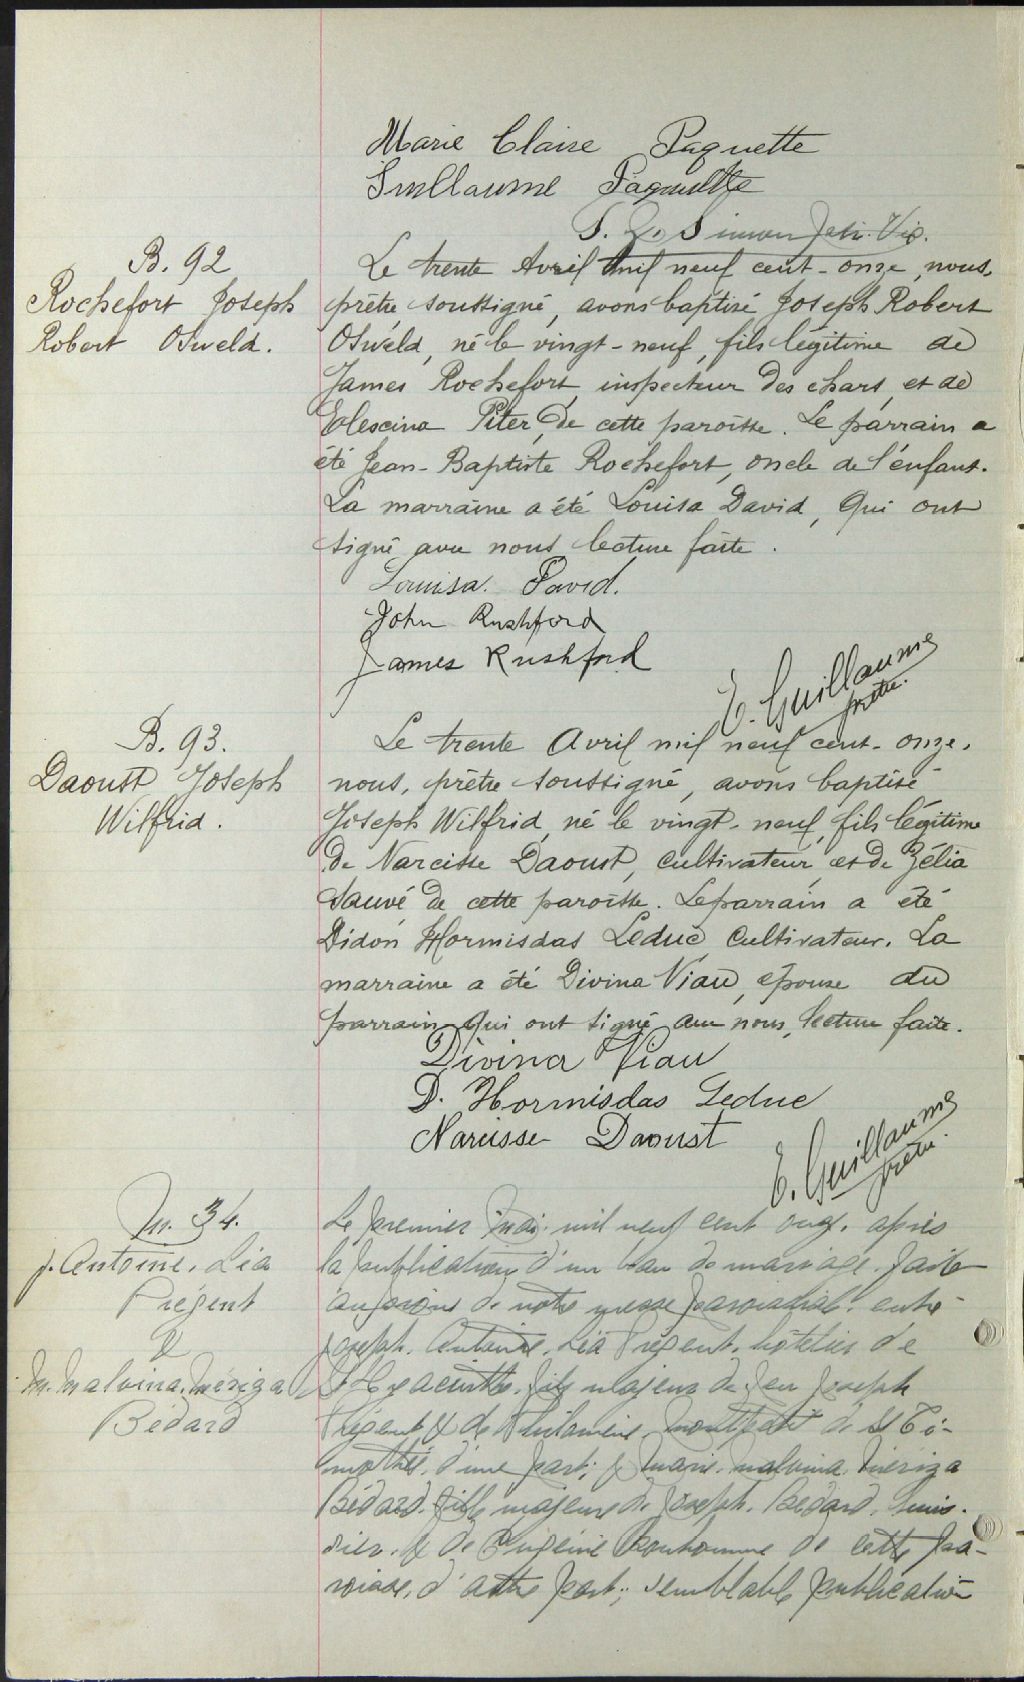 Marie Claire Paquette
Guillaume Paquette
B. 92
Rochefort Joseph
Robert Osweld.
Le trente Avril mil neuf cent-onze, nous,
prêtre soussigné, avons baptisé Joseph Robert
Osweld, né le vingt-neuf, fils légitime de
James Rochefort, inspecteur des chars, et de
Piter, de cette paroisse. Le parrain a
été Jean-Baptiste Rochefort, oncle de l'enfant.
La marraine a été Louisa David, qui ont
signé avec nous lecture faite.
Louisa. David.
John Rushford
James Rushford
E. Guillaume
prêtre.
B. 93.
Daoust Joseph
Wilfrid.
Le trente Avril mil neuf cent-onze,
nous, prêtre soussigné, avons baptisé
Joseph Wilfrid, né le vingt-neuf, fils légitime
de Narcisse Daoust, cultivateur, et de Zélia
Sauvé de cette paroisse. Le parrain a été
Didon Hormisdas Leduc cultivateur. La
marraine a été Divina Viau, épouse du
parrain qui ont signé avec nous, lecture faite.
Divina Viau
D. Hormisdas Leduc
Narcisse Daoust
E. Guillaume
prêtre.
M. 34.
J. Antoine. Lia
Prégent
&
M. Malvina. Mériza
Bédard
Le premier Mai. mil neuf cent onze. après
la publication d'un ban de mariage. faite
au prône de notre messe paroissiale. entre
Joseph. Antoine. Lia Prégent. hôtelier de
St Hyacinthe. fils majeur de feu Joseph
Prégent & de Philomène. Montpetit de St Ti-
mothée. d'une part; & Marie. Malvina. Mériza
Bédard. fille majeure de Joseph. Bédard. menui-
sier. & de Eugénie Bonhomme de cette pa-
roisse. d'autre part; semblable publication